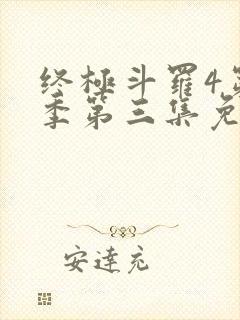 终極斗羅4第
季第三集免
安達充